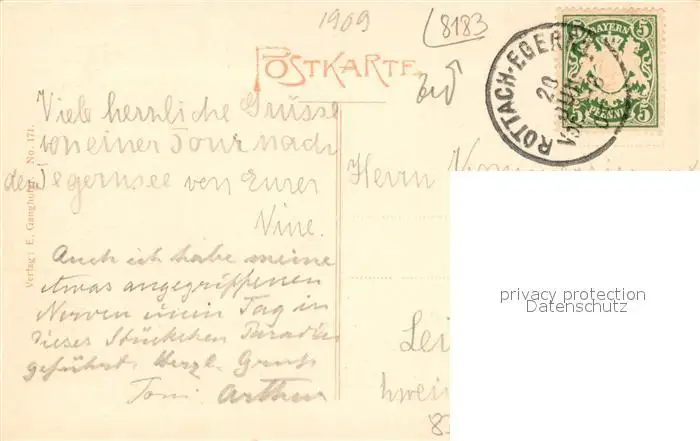 1909
8183
POSTKARTE
BAYERN
5 5
5 PFENNIG 5
ROTTACH-EGERN
20
Viele herrliche Grüsse
von einer Tour nach
dem Tegernsee von Eurer
Vine.
Auch ich habe meine
etwas angegriffenen
Nerven einen Tag in
dieses Stückchen Paradies
geführt. Herzl. Gruß
Toni Arthur
Verlag: E. Ganghofer, No. 171.
Herrn
Lei
privacy protection
Datenschutz